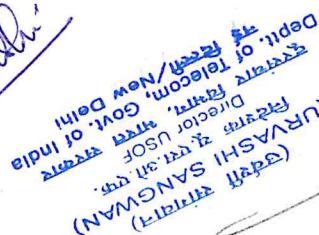 (उर्वशी सांगवान)
URVASHI SANGWAN)
निदेशक यू.एस.ओ.एफ.
Director USOF
दूरसंचार विभाग, भारत सरकार
Deptt. of Telecom, Govt. of India
नई दिल्ली/New Delhi